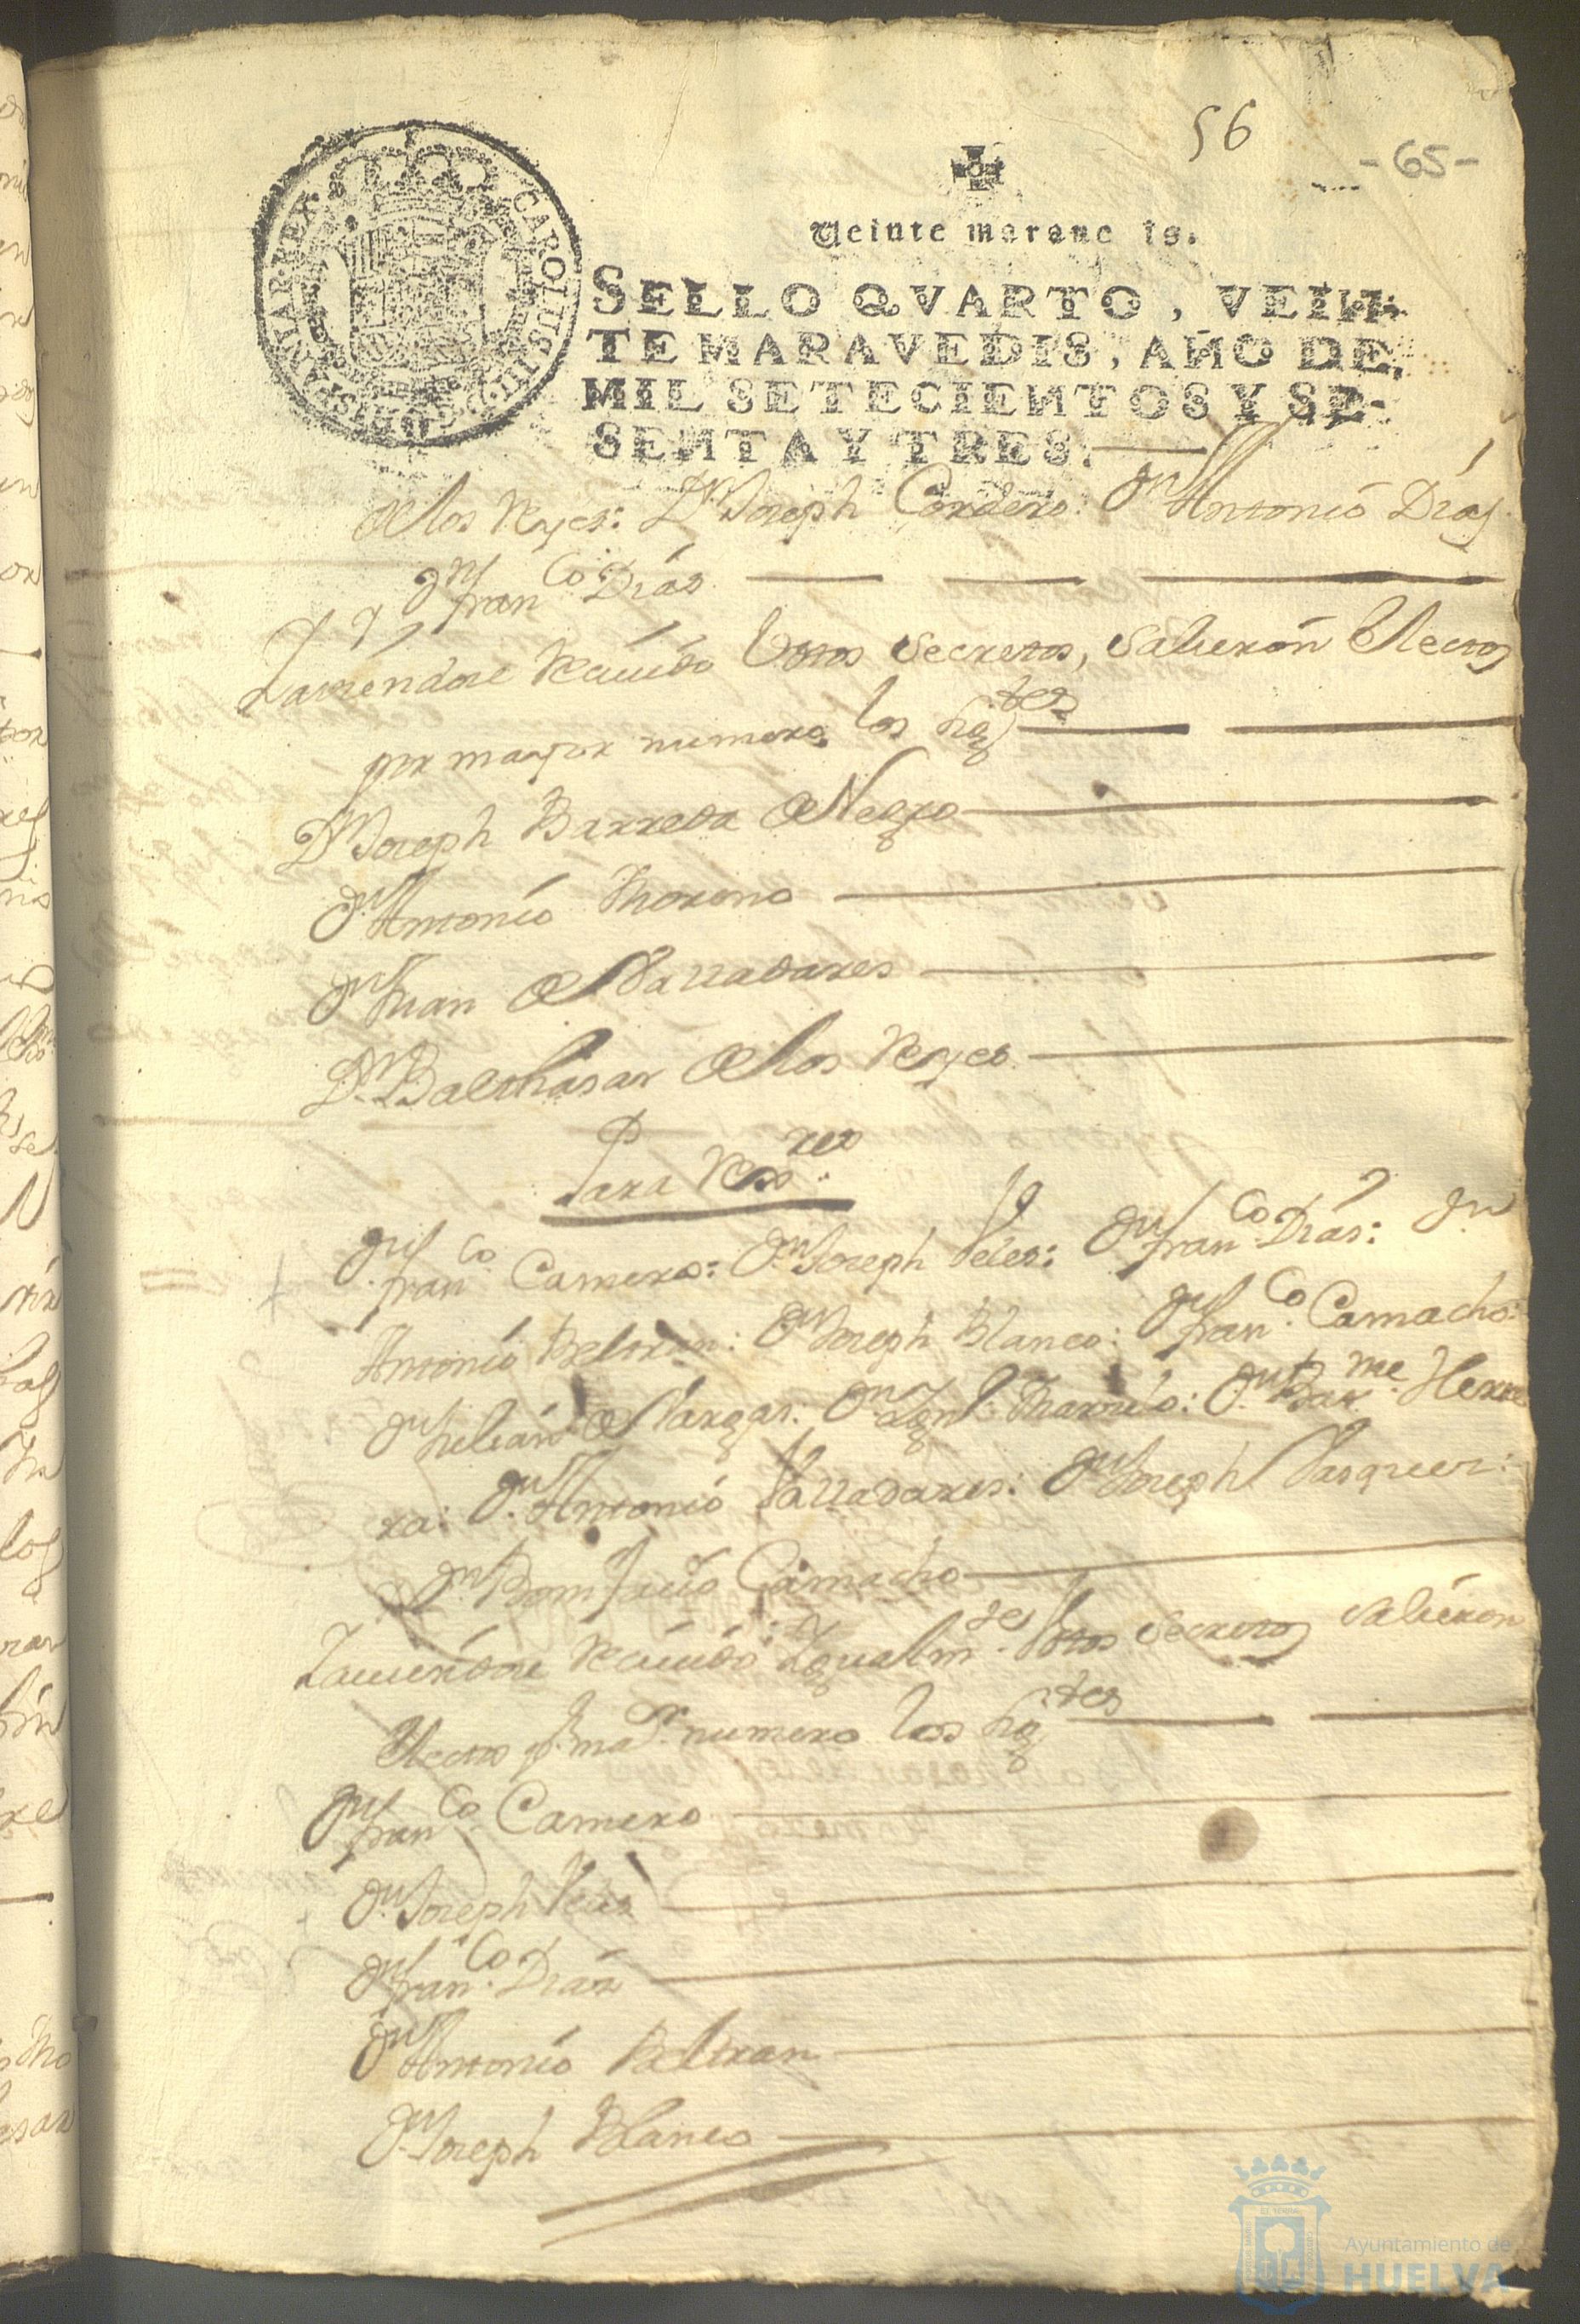 56
-65-
Veinte marave is.
SELLO QVARTO, VEIN-
TE MARAVEDIS, AÑO DE
MIL SETECIENTOS Y SE-
SENTA Y TRES.
CAROLUS III D G HISPANIAR REX
delos Reyes: Dn Joseph Cordero: Dn Antonio Diaz
y Dn Franco Dias
Y aviendose Reciuido Votos Secretos, Salieron Electos
por mayor numero los Sigtes
Dn Joseph Barreda de Negro
Dn Antonio Moreno
Dn Juan de Valladares
Dn Balthasar delos Reyes
Para Rexres
Dn Franco Camero: Dn Joseph Veles: Dn Franco Dias: Dn
Antonio Beltran: Dn Joseph Blanco: Dn Franco Camacho:
Dn Julian de Vargas: Dn Ignl Garrido: Dn Barme Herre
ra: Dn Antonio Valladares: Dn Joseph Vasquez:
Dn Bonifacio Camacho
Y aviendose Reciuido Igualmte Votos Secretos Salieron
Electos pr mar numero los Sigtes
Dn Franco Camero
Dn Joseph Veles
Dn Franco Dias
Dn Antonio Beltran
Dn Joseph Blanco
Ayuntamiento de
HUELVA